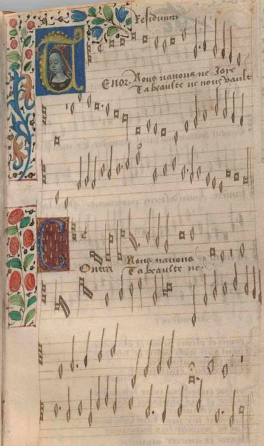 Residuum
Enor Nous navons ne Joye
Ta beaulte ne nous vault
Ontra Nous navons
Ta beaulte ne